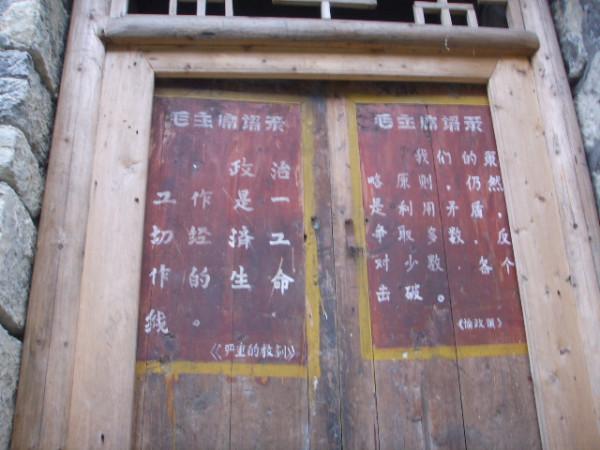 毛主席语录
政治
工作是一
切经济工
作的生命
线。
《严重的教训》
毛主席语录
我们的策
略原则,仍然
是利用矛盾,
争取多数,反
对少数,各个
击破。
《论政策》